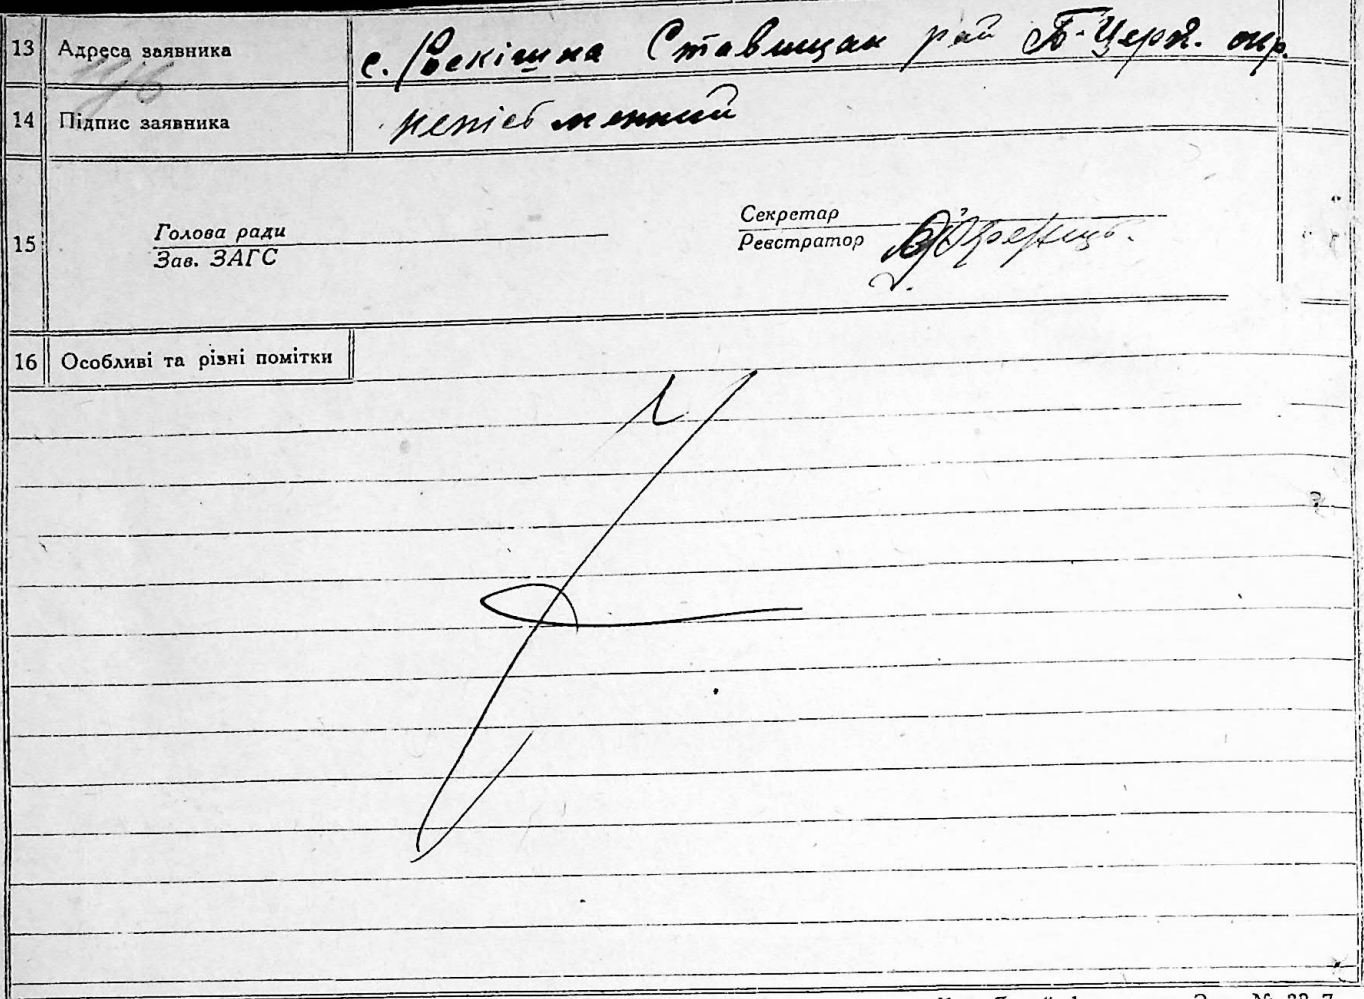 13 Адреса заявника с. Розкішна Ставищан рай Б-Церк. окр.
14 Підпис заявника неписьменний
Голова ради
Секретар
15 Зав. ЗАГС
Реєстратор
16 Особливі та різні помітки